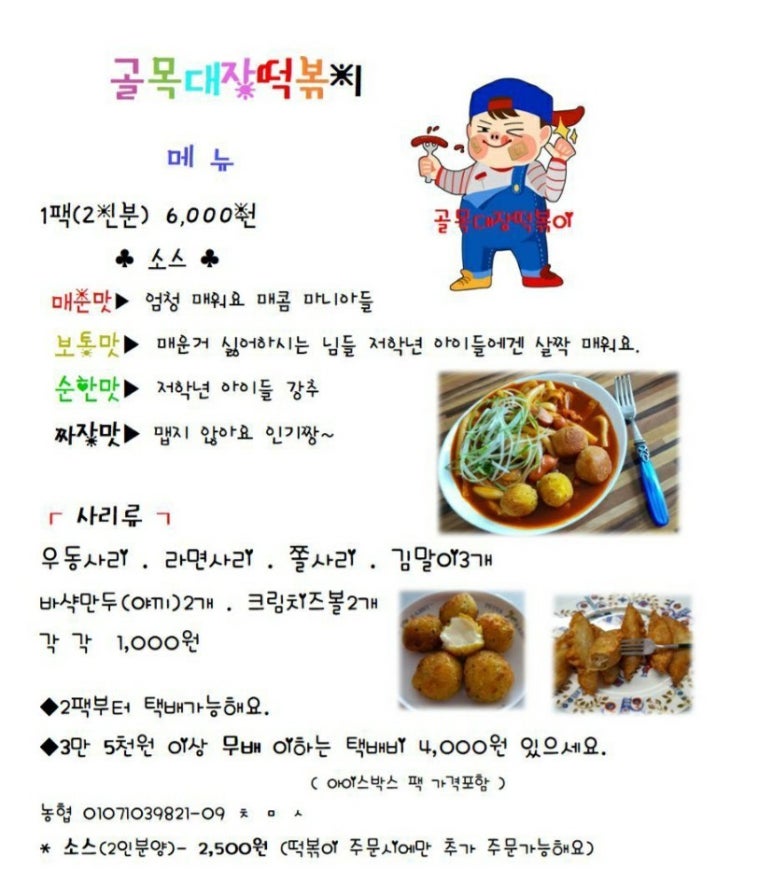 골목대장떡볶이
메 뉴
골목대장떡볶이
1팩(2인분) 6,000원
♣ 소스 ♣
매운맛▶ 엄청 매워요 매콤 마니아들
보통맛▶ 매운거 싫어하시는 님들 저학년 아이들에겐 살짝 매워요.
순한맛▶ 저학년 아이들 강추
짜장맛▶ 맵지 않아요 인기짱~
「 사리류 ㄱ
우동사리 . 라면사리 . 쫄사리 . 김말이3개
바삭만두(야끼)2개 . 크림치즈볼2개
각 각 1,000원
◆2팩부터 택배가능해요.
◆3만 5천원 이상 무배 이하는 택배비 4,000원 있으세요.
( 아이스박스 팩 가격포함 )
농협 01071039821-09 ㅊ ㅁ ㅅ
* 소스(2인분양)- 2,500원 (떡볶이 주문시에만 추가 주문가능해요)